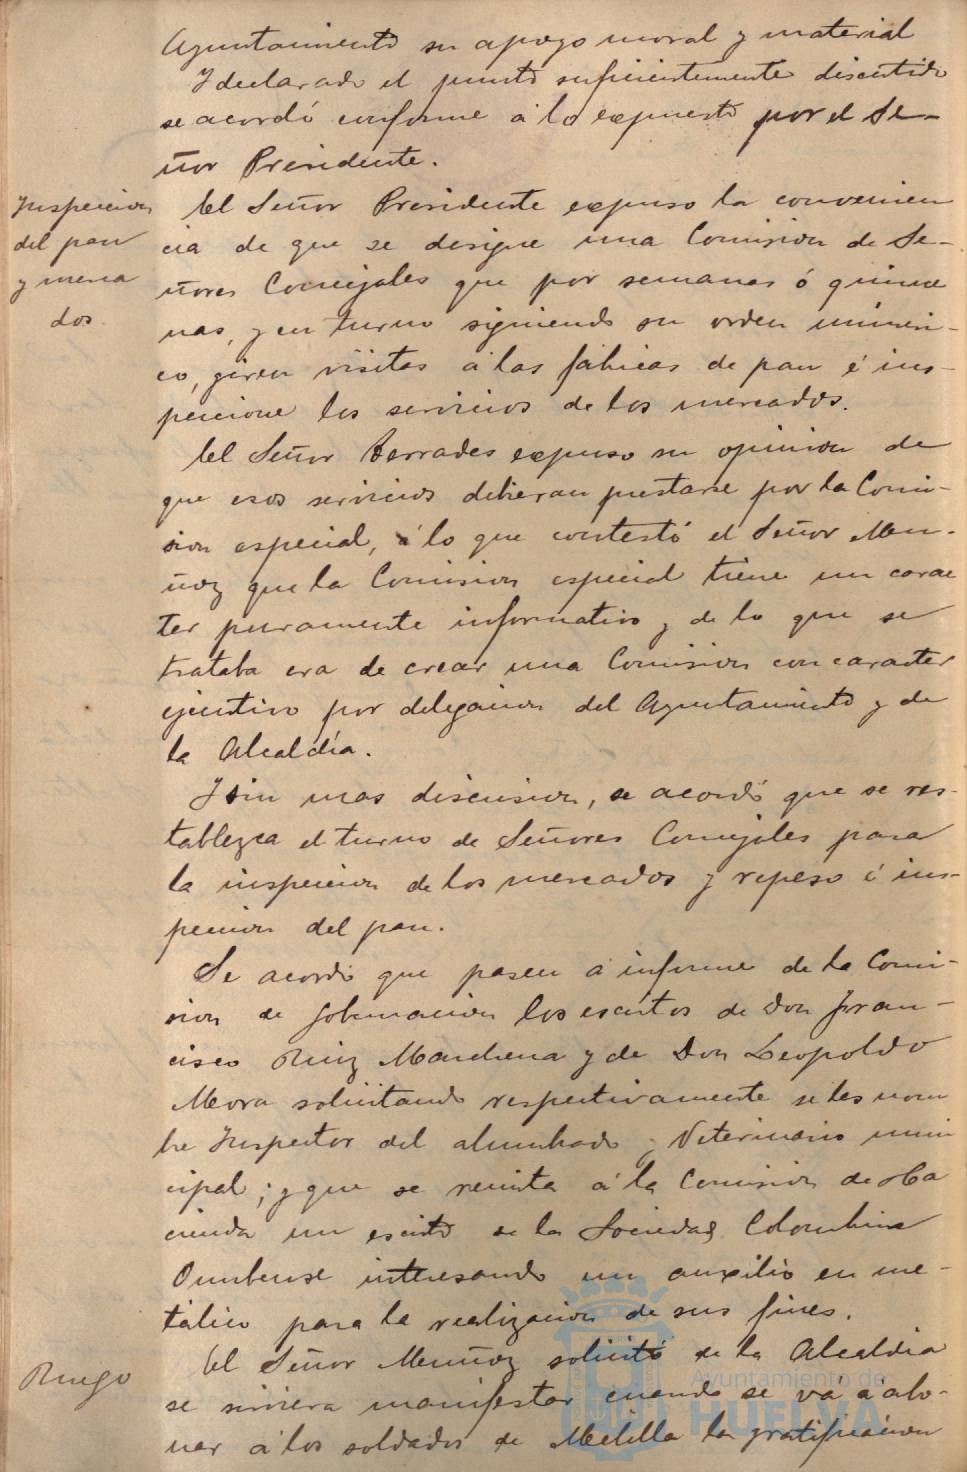 Ayuntamiento su apoyo moral y material
Y declarado el punto suficientemente discutido
se acordó conforme á lo expuesto por el Se-
ñor Presidente.
Inspeccion
del pan
y merca
dos.
El Señor Presidente expuso la convenien
cia de que se designe una Comision de Se-
ñores Concejales que por semanas ó quince
nas, y en turno siguiendo su orden numéri-
co, giren visitas á las fábricas de pan é ins-
peccione los servicios de los mercados.
El Señor Terrades expuso su opinion de
que esos servicios debieran prestarse por la Comi-
sion especial, á lo que contestó el Señor Mu-
ñoz que la Comision especial tiene un carac
ter puramente informativo y de lo que se
trataba era de crear una Comision con caracter
ejecutivo por delegacion del Ayuntamiento y de
la Alcaldía.
Y sin mas discusion, se acordó que se res-
tablezca el turno de Señores Concejales para
la inspeccion de los mercados y repeso é ins-
peccion del pan.
Se acordó que pasen á informe de la Comi-
sion de Gobernacion los escritos de Don Fran-
cisco Ruiz Marchena y de Don Leopoldo
Mora solicitando respectivamente se les nom
bre Inspector del alumbrado y Veterinario muni
cipal; y que se remita á la Comision de Ha
cienda un escrito de la Sociedad Colombina
Onubense interesando un auxilio en me-
tálico para la realizacion de sus fines.
Ruego
El Señor Muñoz solicitó de la Alcaldia
se sirviera manifestar cuando se vá a abo-
nar á los soldados de Melilla la gratificacion
Ayuntamiento de
HUELVA